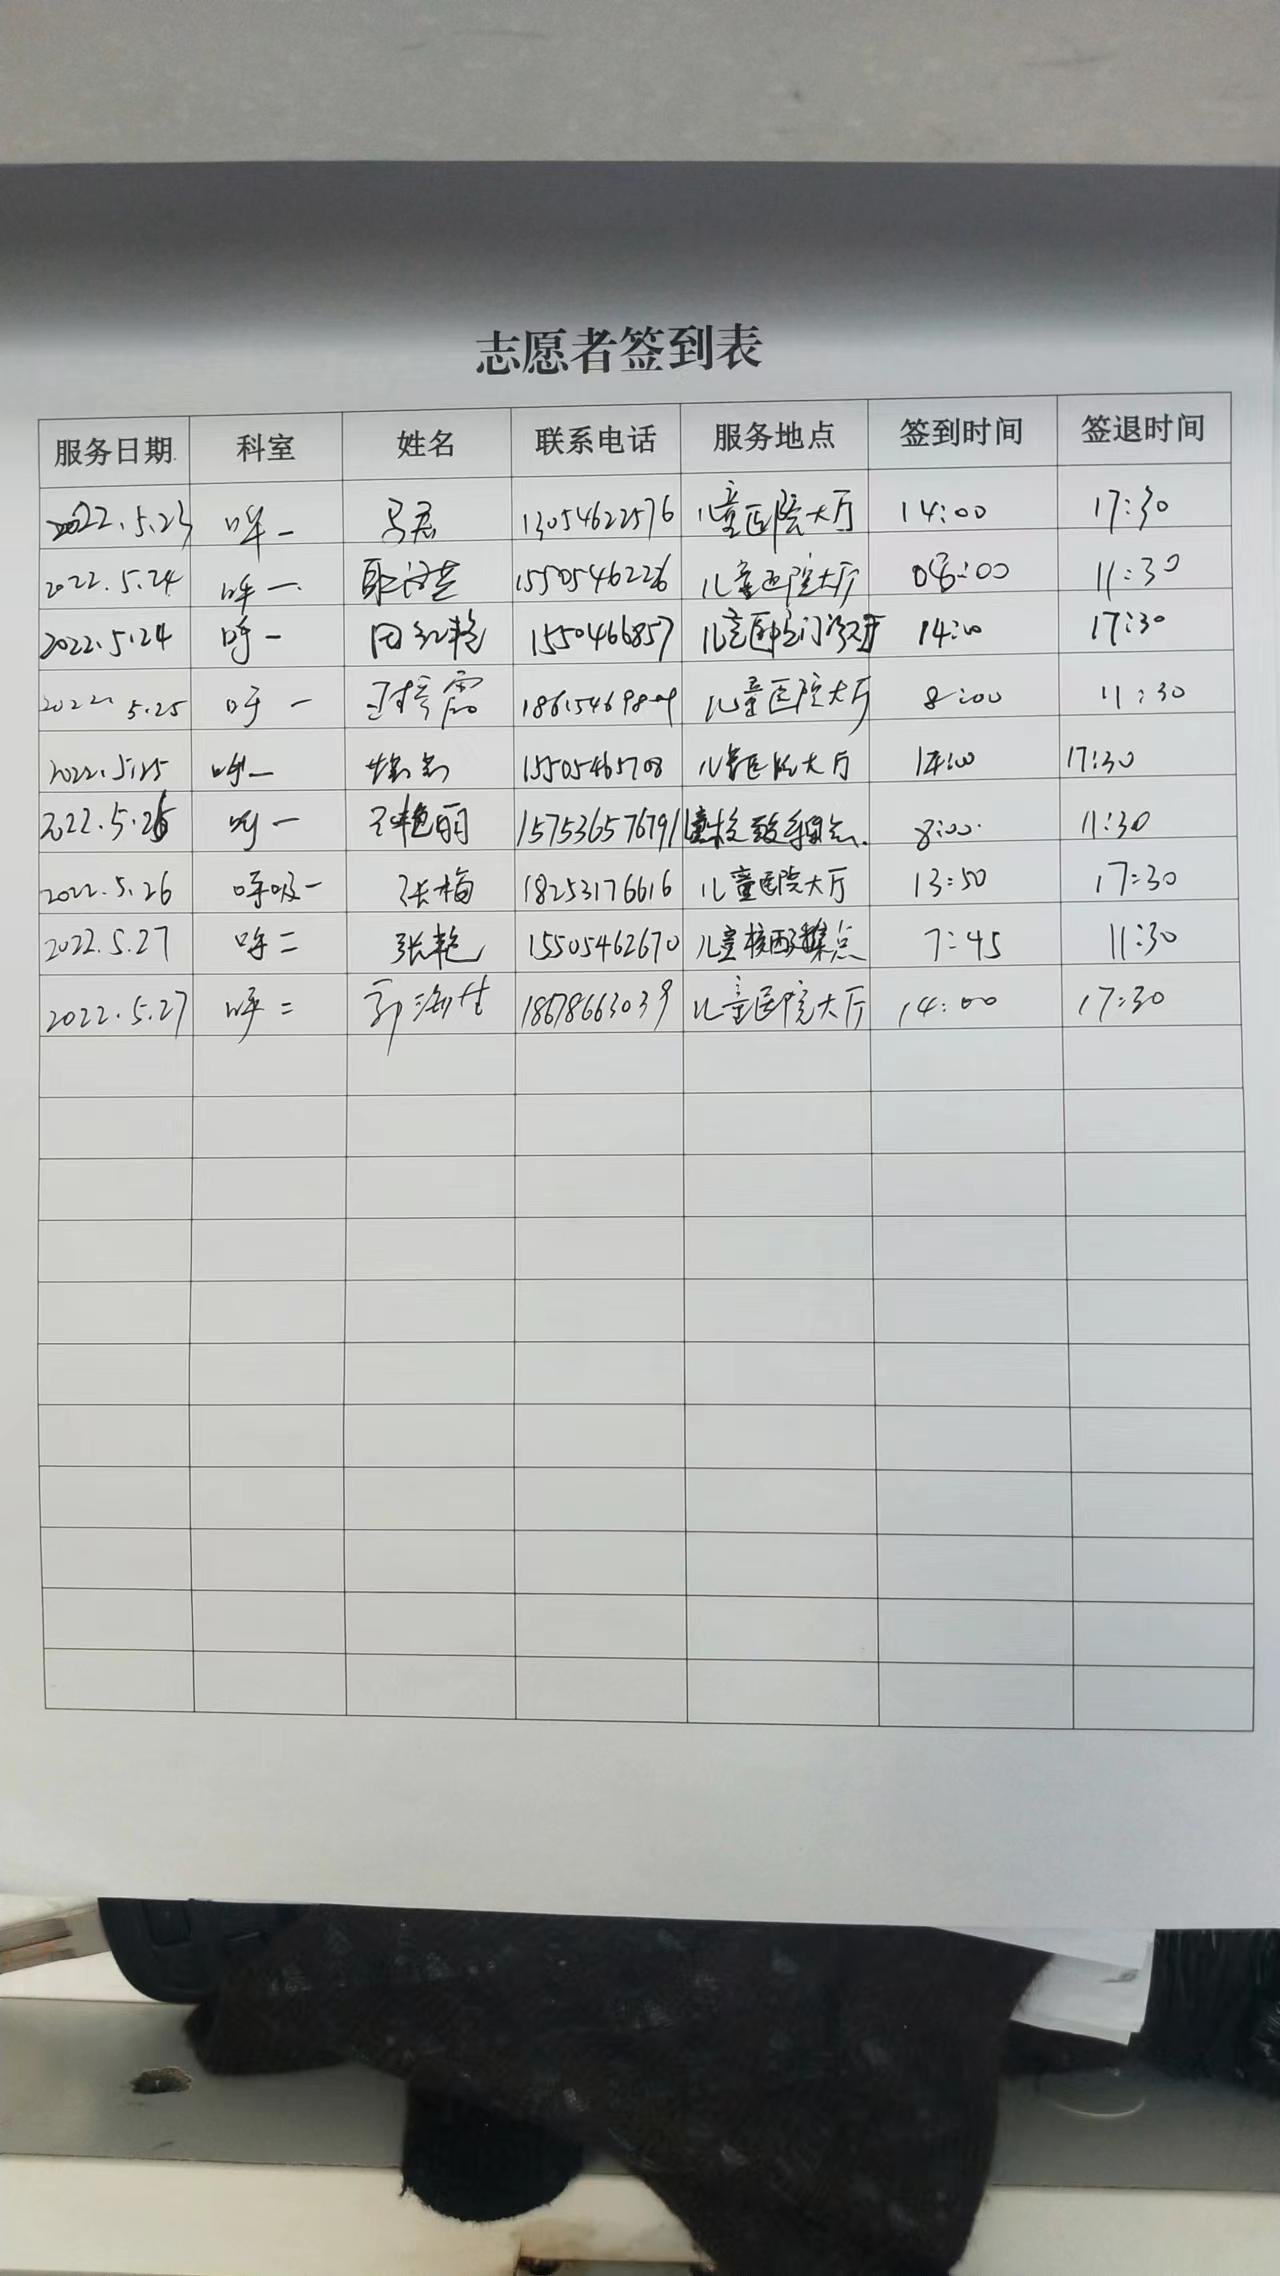 志愿者签到表
服务日期 科室 姓名 联系电话 服务地点 签到时间 签退时间
2022.5.23 呼一 马君 13054622576 儿童医院大厅 14:00 17:30
2022.5.24 呼一 15505546226 儿童医院大厅 08:00 11:30
2022.5.24 呼一 田红艳 1550466857 儿童医院门诊大厅 14:00 17:30
2022 5.25 呼一 儿童医院大厅 8:00 11:30
2022.5.25 呼一 15505465708 儿童医院大厅 14:00 17:30
2022.5.26 呼一 王艳丽 15753657679 8:00 11:30
2022.5.26 呼吸一 张梅 18253176616 儿童医院大厅 13:50 17:30
2022.5.27 呼二 张艳 15505462670 儿童核酸采集点 7:45 11:30
2022.5.27 呼二 18678663039 儿童医院大厅 14:00 17:30